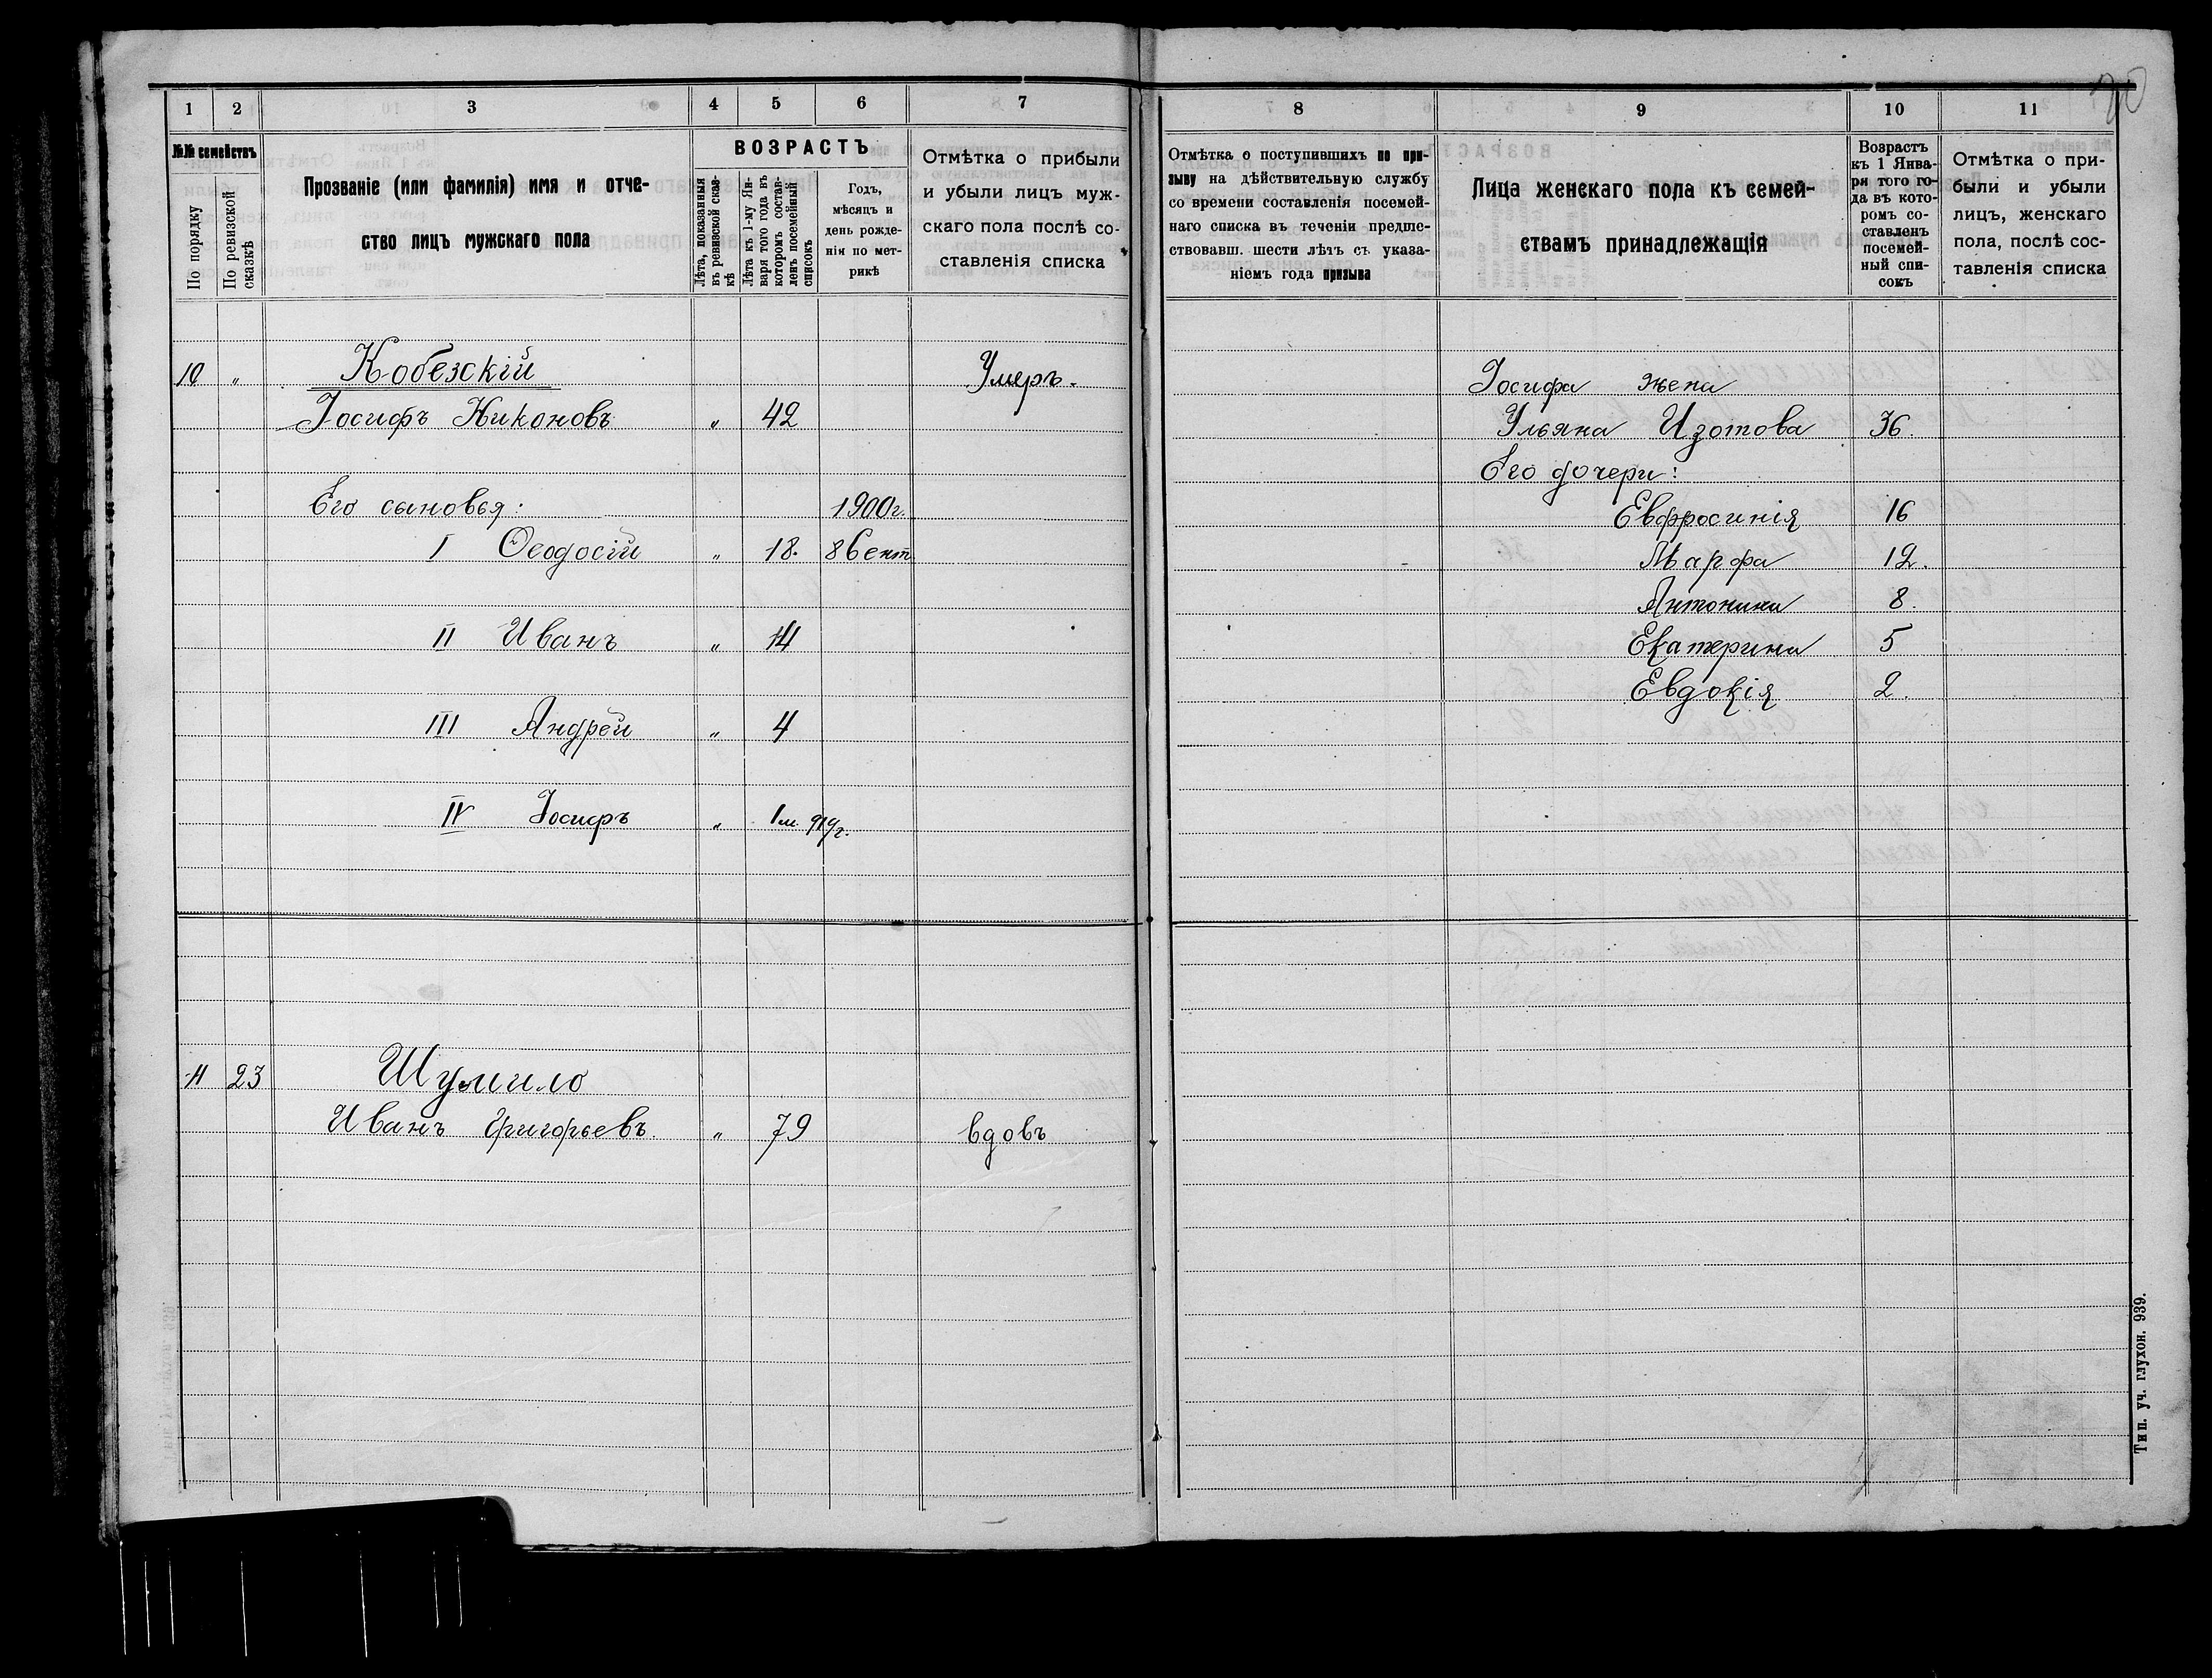 20
1 2 3 4 5 6 7
№№ семействъ
По порядку
По ревизской сказкѣ
Прозваніе (или фамилія) имя и отче-
ство лицъ мужскаго пола
ВОЗРАСТЪ
Лѣта, показанныя въ ревизской сказ-кѣ
Лѣта къ 1-му Ян-варя того года въ которомъ состав-ленъ посемейный списокъ
Годъ,
мѣсяцъ и
день рожде-
нія по мет-
рикѣ
Отмѣтка о прибыли
и убыли лицъ муж-
скаго пола послѣ со-
ставленія списка
10 „ Кобезскій Умеръ.
Іосифъ Никоновъ „ 42
Его сыновья: 1900г.
I Ѳеодосій „ 18. 8 Сент
II Иванъ „ 14
III Андрей „ 4
IV Іосифъ „ 1 м. 919г.
11 23 Шумило
Иванъ Григорьевъ. „ 79 вдовъ
8 9 10 11
Отмѣтка о поступившихъ по при-
зыву на дѣйствительную службу
со времени составленія посемей-
наго списка въ теченіи предше-
ствовавш. шести лѣтъ съ указа-
ніемъ года призыва
Лица женскаго пола къ семей-
ствамъ принадлежащія
Возрастъ
къ 1 Янва-
ря того го-
да въ кото-
ромъ со-
ставленъ
посемей-
ный спи-
сокъ
Отмѣтка о при-
были и убыли
лицъ, женскаго
пола, послѣ сос-
тавленія списка
Іосифа жена
Ульяна Изотова 36.
Его дочери:
Евфросинія 16
Марфа 12.
Антонина 8.
Екатерина 5
Евдокія 2.
Тип. уч. глухон. 939.